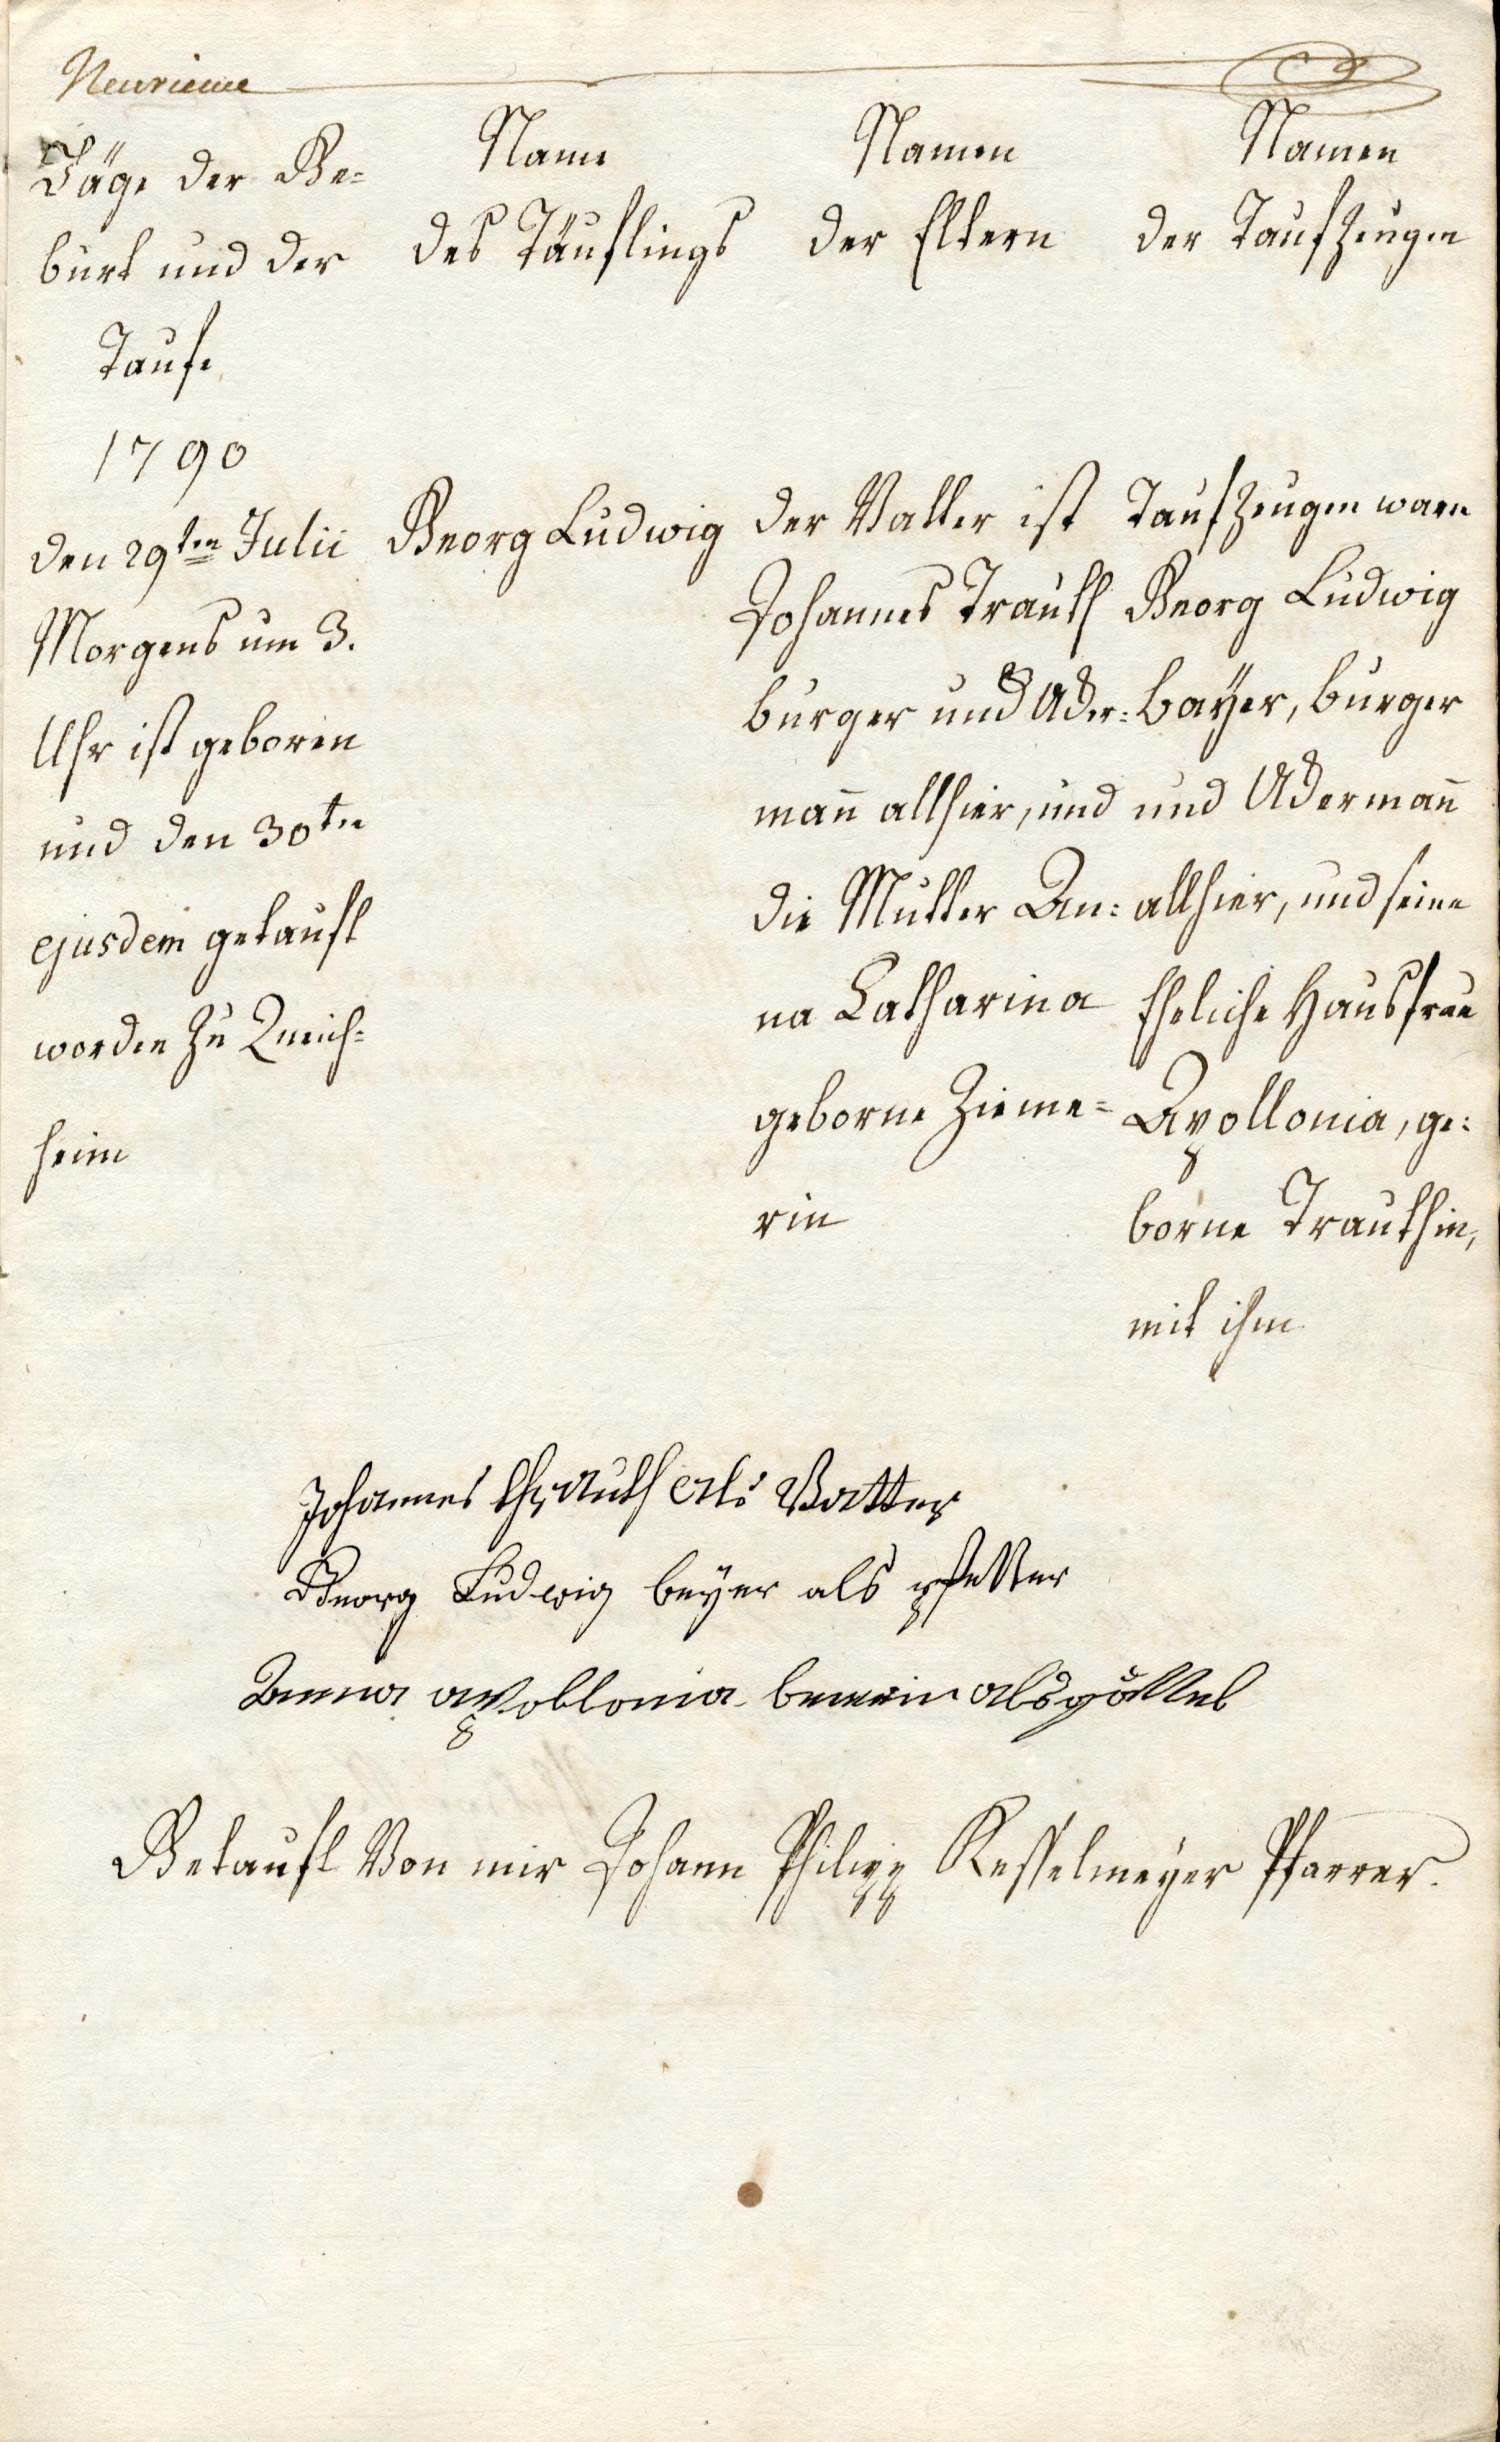 Neuvieme
Täge der Ge=
burt und der
Taufe
Name
des Täuflings
Namen
der Eltern
Namen
der Taufzeugen
1790
den 29ten Julii
Morgens um 3.
Uhr ist geboren
und den 30ten
ejusdem getauft
worden zu Queich=
heim
Georg Ludwig
der Vatter ist
Johannes Trauth
burger und Acker=
mañ allhier, und
die Mutter An=
na Catharina
geborne Zieme=
rin
Taufzeugen warn
Georg Ludwig
Bayer, burger
und Ackermañ
allhier, und seine
Eheliche Hausfrau
Apollonia, ge=
borne Trauthin,
mit ihm
Johannes thrauth als Vatter
Georg Ludwig beyer als pfetter
Anna apollonia als göttel
Getauft Von mir Johann Philipp Kesselmeyer Pfarrer.